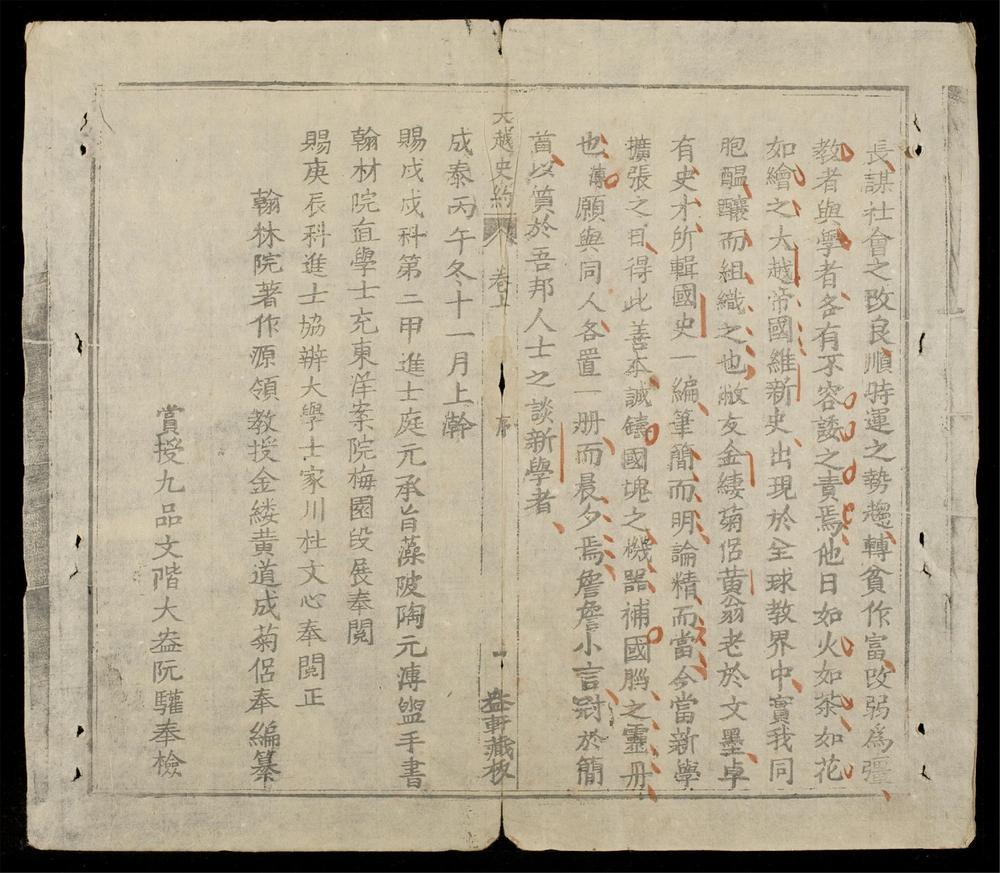 長謀社會之改良順時運之勢趨轉貧作富改弱為彊
教者與學者各有不容諉之責焉他日如火如荼如花
如繪之大越帝國維新史出現於全球教界中實我同
胞醞釀而組織之也敝友金縷菊侶黄翁老於文墨卓
有史才所輯國史一編筆簡而明論精而當今當新學
擴張之日得此善本誠鑄國塊之機器補國腦之靈丹
也溥願與同人各置一册而晨夕焉詹詹小言冠於簡
首以質於吾邦人士之談新學者
大越史約 卷上 序 一 益軒藏板
成泰丙午冬十一月上澣
賜戊戌科第二甲進士庭元承旨藻陂陶元溥盥手書
翰材院直學士充東洋案院梅園段展奉閲
賜庚辰科進士協辦大學士家川杜文心奉閲正
翰林院著作源領教授金縷黄道成菊侶奉編纂
賞授九品文階大盎阮驩奉檢